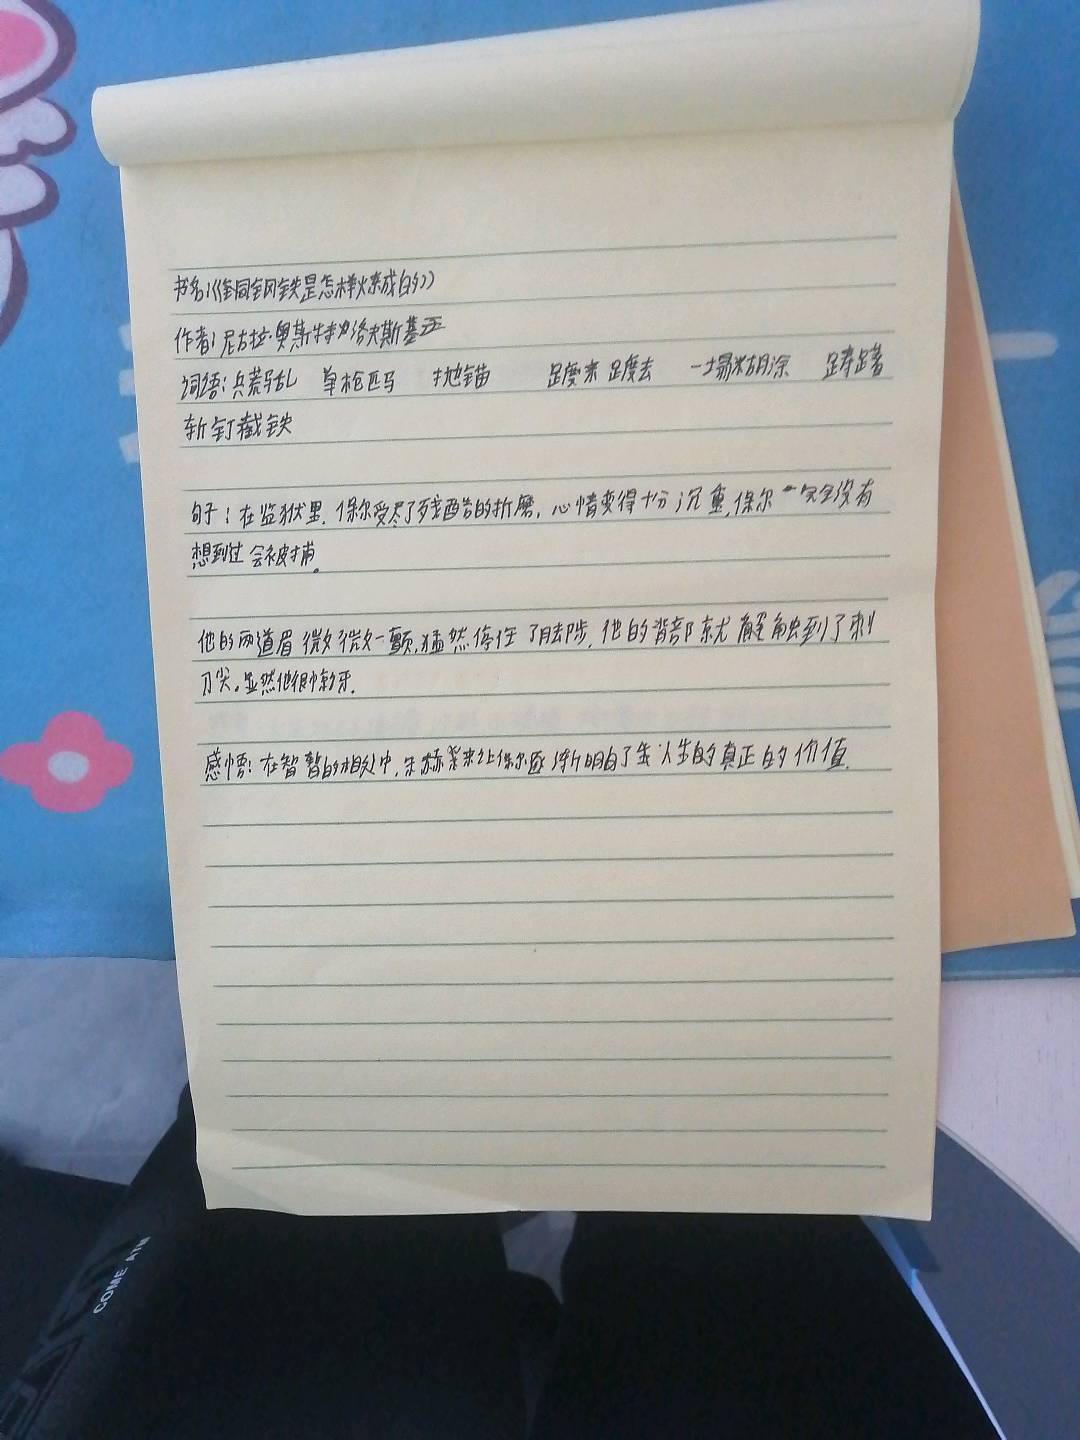 书名:《钢铁是怎样炼成的》
作者:尼古拉·奥斯特洛夫斯基
词语:兵荒马乱 单枪匹马 抛锚 踱来踱去 一塌糊涂 踌躇
斩钉截铁
句子:在监狱里,保尔受尽了残酷的折磨,心情变得十分沉重,保尔完全没有
想到过会被捕。
他的两道眉微微一颤,猛然停住了脚步,他的背部就触到了刺
刀尖。显然他很
感悟:在暂的相处中,朱赫来让保尔逐渐明白了人生的真正的价值.
COME